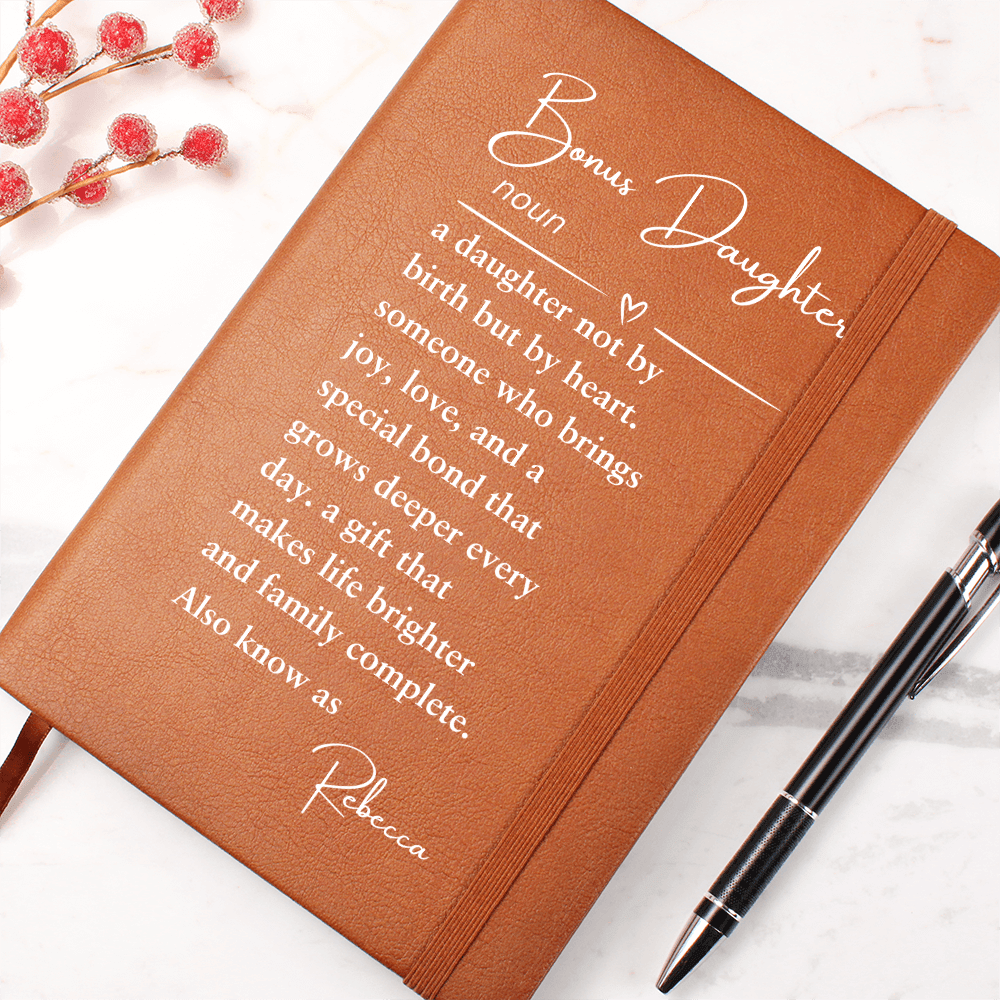 Bonus Daughter
noun
a daughter not by
birth but by heart.
someone who brings
joy, love, and a
special bond that
grows deeper every
day. a gift that
makes life brighter
and family complete.
Also know as
Rebecca